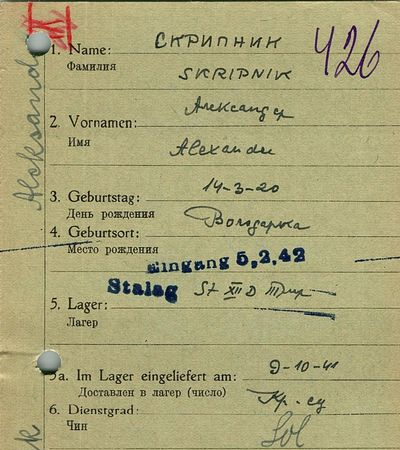 426
1. Name: СКРИПНИК
Фамилия
SKRIPNIK
Александр
2. Vornamen:
Имя
Alexander
3. Geburtstag: 14-3-20
День рождения
4. Geburtsort: Володарка
Место рождения
Eingang 5.2.42
Stalag St XII D
5. Lager:
Лагерь
5a. Im Lager eingeliefert am: 9-10-41
Доставлен в лагер (число)
6. Dienstgrad: Кр-ец
Чин
Sol
Aleksand
k